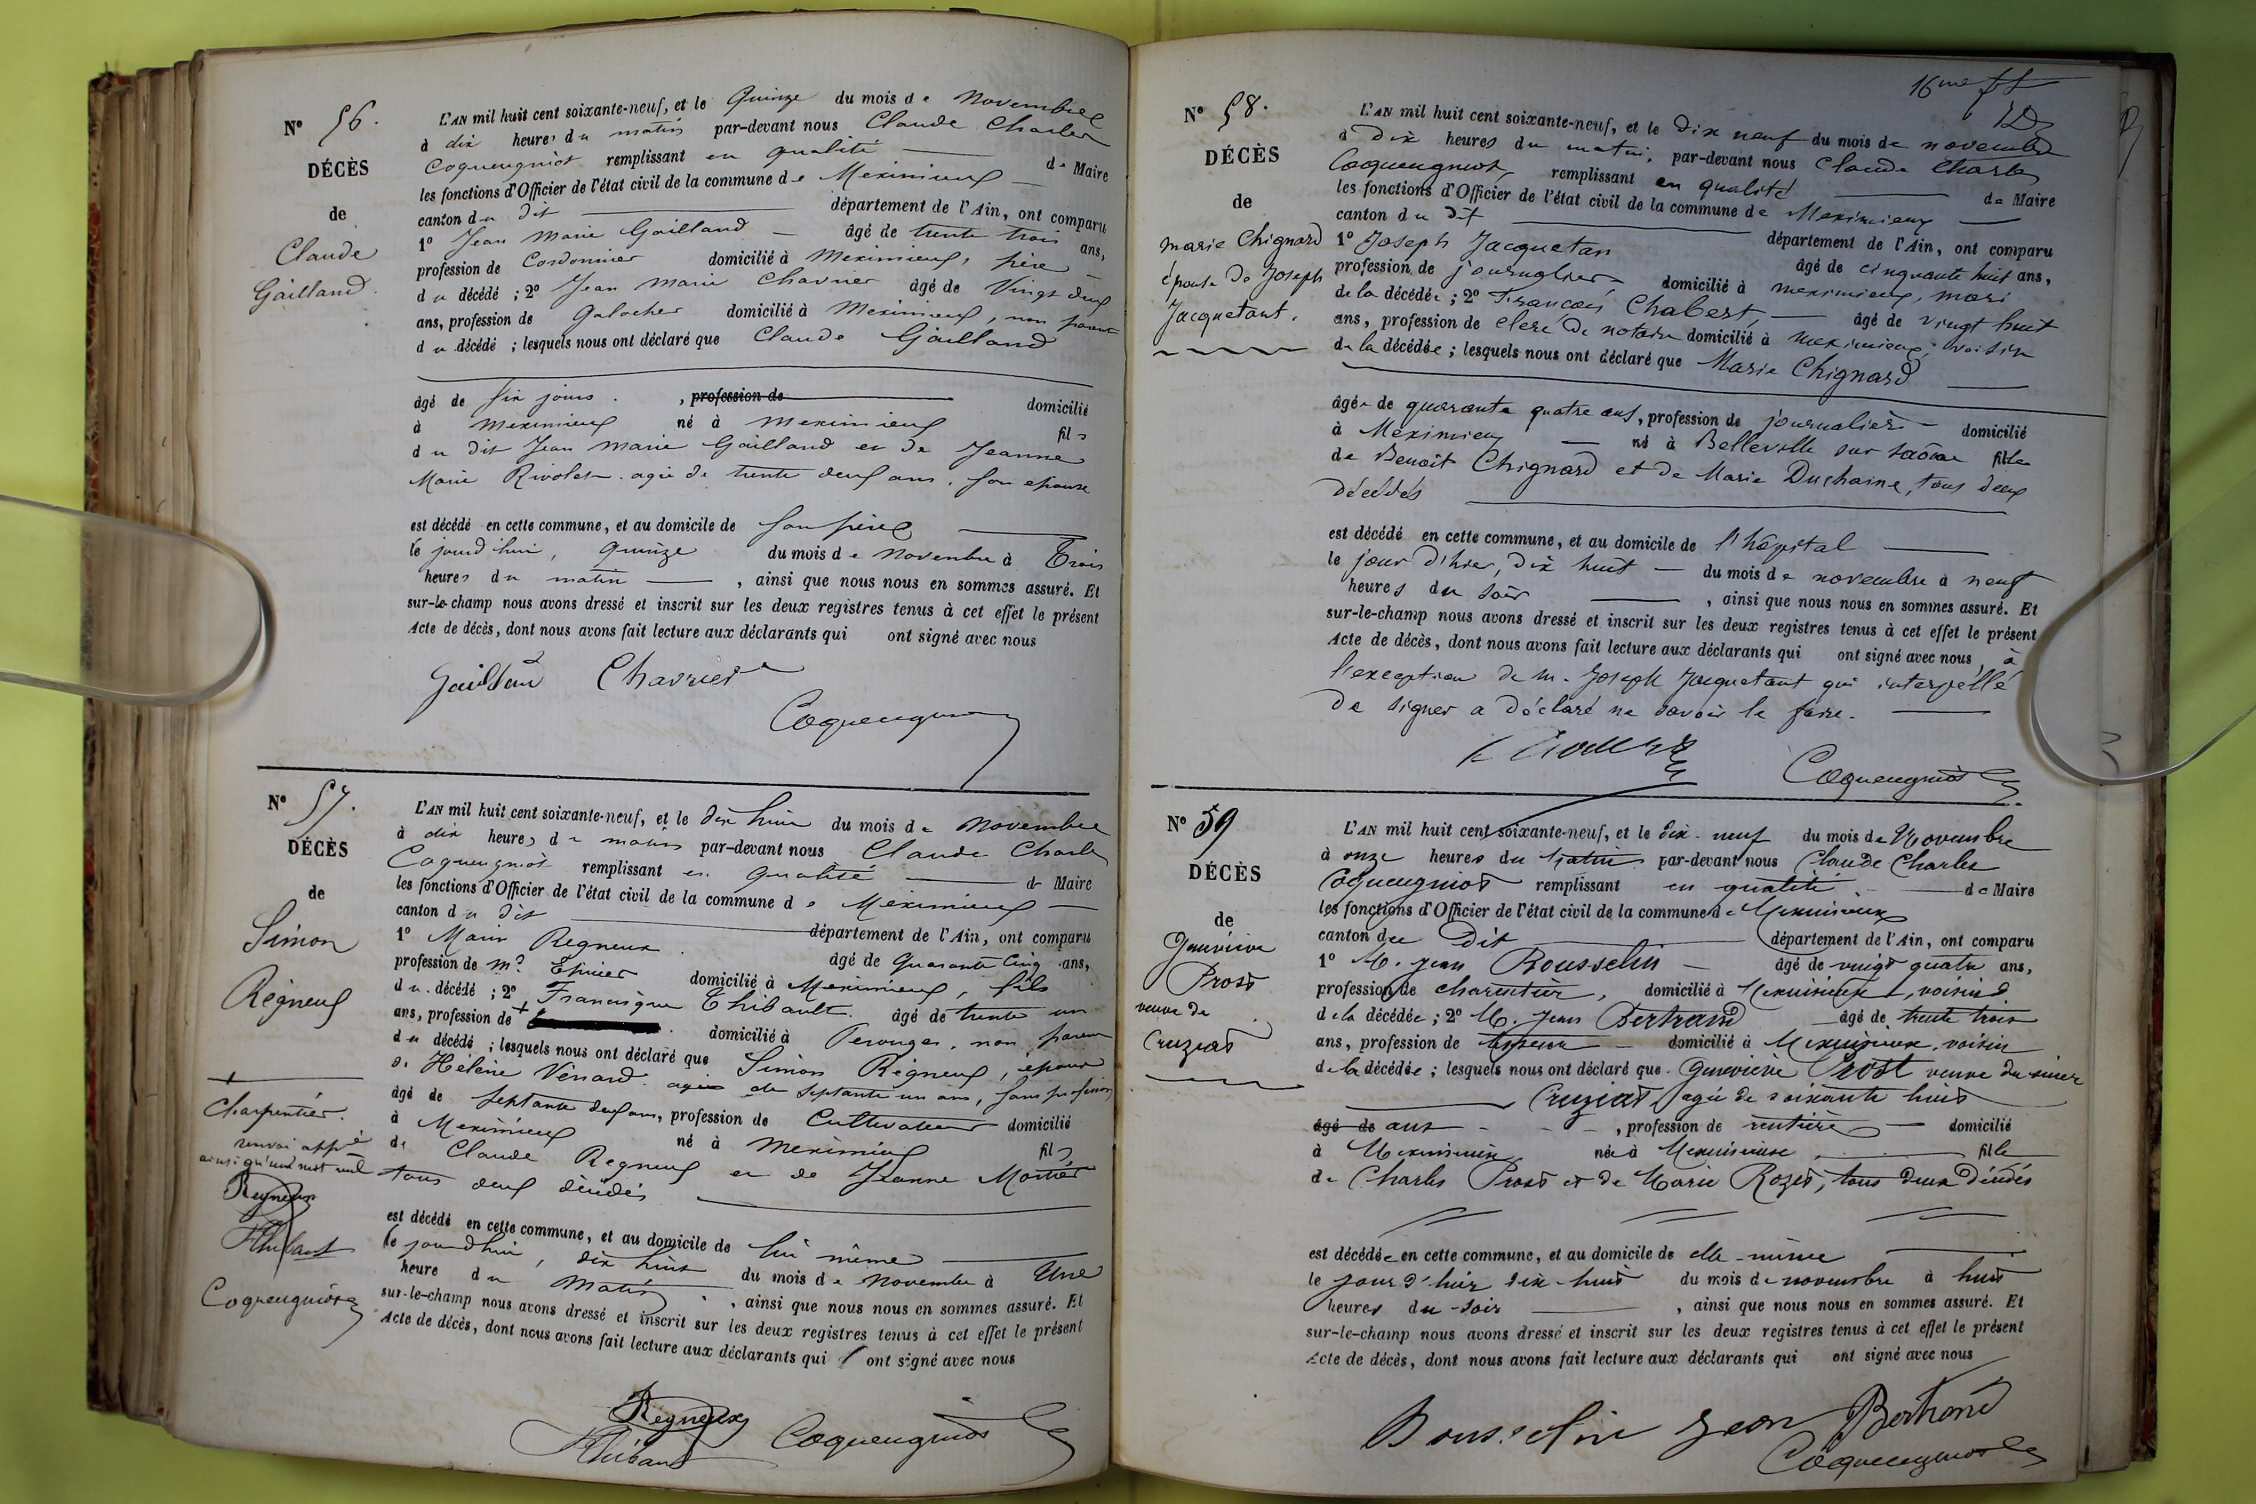 Nº 56.
DÉCÈS
de
Claude
Gailland.
L'AN mil huit cent soixante-neuf, et le Quinze du mois de Novembre
à dix heures du matin par-devant nous Claude Charles
Coqueugniot remplissant en qualité de Maire
les fonctions d'Officier de l'état civil de la commune de Meximieux
canton du dit département de l'Ain, ont comparu
1º Jean Marie Gailland âgé de trente trois ans,
profession de Cordonnier domicilié à Meximieux, père
du décédé ; 2º Jean Marie Chavrier âgé de Vingt deux
ans, profession de Galocher domicilié à Meximieux, non parent
du décédé ; lesquels nous ont déclaré que Claude Gailland
âgé de six jours. , profession de domicilié
à Meximieux né à Meximieux fils
du dit Jean Marie Gailland et de Jeanne
Marie Rivolet agée de trente deux ans, son epouse
est décédé en cette commune, et au domicile de son père
le jourd'hui, quinze du mois de Novembre à Trois
heures du matin , ainsi que nous nous en sommes assuré. Et
sur-le-champ nous avons dressé et inscrit sur les deux registres tenus à cet effet le présent
Acte de décès, dont nous avons fait lecture aux déclarants qui ont signé avec nous
Gailland Chavrier
Coqueugniot
Nº 57.
DÉCÈS
de
Simon
Régneux
L'AN mil huit cent soixante-neuf, et le dix huit du mois de Novembre
à dix heures de matin par-devant nous Claude Charles
Coqueugniot remplissant en qualité de Maire
les fonctions d'Officier de l'état civil de la commune de Meximieux
canton du dit département de l'Ain, ont comparu
1º Marin Regneux âgé de Quarante Cinq ans,
profession de Md Epicier domicilié à Meximieux, fils
du décédé ; 2º Francisque Thibault âgé de trente un
ans, profession de domicilié à Perouges, non parent
du décédé ; lesquels nous ont déclaré que Simon Régneux, époux
de Hélène Vénard agée de septante un ans, sans profession
âgé de septante deux ans, profession de Cultivateur domicilié
à Meximieux né à Meximieux fils
de Claude Regneux et de Jeanne Mortier
tous deux décédés
est décédé en cette commune, et au domicile de lui même
le jourd'hui, dix huit du mois de Novembre à Une
heure du Matin , ainsi que nous nous en sommes assuré. Et
sur-le-champ nous avons dressé et inscrit sur les deux registres tenus à cet effet le présent
Acte de décès, dont nous avons fait lecture aux déclarants qui ont signé avec nous
Charpentier.
renvoi appvé
ainsi qu'un mot nul
Regneux
Thibault
Coqueugniot
Regneux
Thibault Coqueugniot
16me
Nº 58.
DÉCÈS
de
Marie Chignard
épouse de Joseph
Jacquetant.
L'AN mil huit cent soixante-neuf, et le dix neuf du mois de novembre
à dix heures du matin, par-devant nous Claude Charles
Coqueugniot, remplissant en qualité de Maire
les fonctions d'Officier de l'état civil de la commune de Meximieux
canton du dit département de l'Ain, ont comparu
1º Joseph Jacquetan âgé de cinquante huit ans,
profession de journalier domicilié à meximieux, mari
de la décédée ; 2º François Chabert, âgé de vingt huit
ans, profession de clerc de notaire domicilié à meximieux, voisin
de la décédée ; lesquels nous ont déclaré que Marie Chignard
âgée de quarante quatre ans, profession de journalière domicilié
à Meximieux né à Belleville sur saône fille
de Benoit Chignard et de Marie Duchaine, tous deux
décédés
est décédé en cette commune, et au domicile de l'hôpital
le jour d'hier, dix huit du mois de novembre à neuf
heures du soir , ainsi que nous nous en sommes assuré. Et
sur-le-champ nous avons dressé et inscrit sur les deux registres tenus à cet effet le présent
Acte de décès, dont nous avons fait lecture aux déclarants qui ont signé avec nous, à
l'exception de m. Joseph Jacquetant qui interpellé
de signer a déclaré ne savoir le faire.
Coqueugniot
Nº 59
DÉCÈS
de
Geneviève
Prost
veuve de
Cruziat
L'AN mil huit cent soixante-neuf, et le dix-neuf du mois de Novembre
à onze heures du matin par-devant nous Claude Charles
Coqueugniot remplissant en qualité de Maire
les fonctions d'Officier de l'état civil de la commune de Meximieux
canton du Dit département de l'Ain, ont comparu
1º M. Jean Rousselin âgé de vingt quatre ans,
profession de charcutier, domicilié à Meximieux, voisin
de la décédée ; 2º M. Jean Bertrand âgé de trente trois
ans, profession de domicilié à Meximieux, voisin
de la décédée ; lesquels nous ont déclaré que Geneviève Prost veuve du sieur
Cruziat agée de soixante huit
âgé de ans , profession de rentière domicilié
à Meximieux née à Meximieux fille
de Charles Prost et de Marie Rozet, tous deux décédés
est décédée en cette commune, et au domicile de elle-même
le jour d'hier dix-huit du mois de novembre à huit
heures du soir , ainsi que nous nous en sommes assuré. Et
sur-le-champ nous avons dressé et inscrit sur les deux registres tenus à cet effet le présent
Acte de décès, dont nous avons fait lecture aux déclarants qui ont signé avec nous
Rousselin Jean Bertrand
Coqueugniot